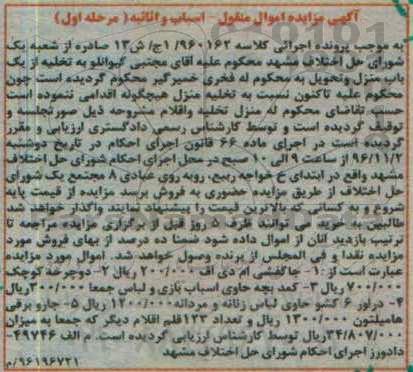 آگهی مزایده اموال منقول - اسباب و اثاثیه ( مرحله اول)
به موجب پرونده اجرائی کلاسه ۹۶۰۱۶۲/ ۱ج/ ش۱۳ صادره از شعبه یک
شورای حل اختلاف مشهد محکوم علیه آقای مجتبی گیوانلو به تخلیه از یک
باب منزل وتحویل به محکوم له فخری خمیرگیر محکوم گردیده است چون
محکوم علیه تاکنون نسبت به تخلیه منزل هیچگونه اقدامی ننموده است
حسب تقاضای محکوم له منزل تخلیه واقلام مشروحه ذیل صورتجلسه و
توقیف گردیده است و توسط کارشناس رسمی دادگستری ارزیابی و مقرر
گردیده است در اجرای ماده ۶۶ قانون اجرای احکام در تاریخ دوشنبه
۹۶/۱۱/۲ از ساعت ۹ الی ۱۰ صبح در محل اجرای احکام شورای حل اختلاف
مشهد واقع در ابتدای خ خواجه ربیع، روبه روی عبادی ۸ مجتمع یک شورای
حل اختلاف از طریق مزایده حضوری به فروش برسد مزایده از قیمت پایه
شروع و به کسانی که بالاترین قیمت را پیشنهاد نمایند واگذار خواهد شد.
طالبین به خرید می توانند ظرف ۵ روز قبل از برگزاری مزایده مراجعه تا
ترتیب بازدید آنان از اموال داده شود ضمنا ده درصد از بهای فروش مورد
مزایده نقدا و فی المجلس از برنده وصول خواهد شد. اموال مورد مزایده
عبارت است از: ۱- جاکفشی ام دی اف ۲۰۰/۰۰۰ ریال ۲- دوچرخه کوچک
۷۰۰/۰۰۰ ریال ۳- کمد بچه حاوی اسباب بازی و لباس جمعا ۳۰۰/۰۰۰ریال
۴- دراور ۶ کشو حاوی لباس زنانه و مردانه۱۲۰۰/۰۰۰ ریال ۵- جارو برقی
هامیلتون ۱۳۰۰/۰۰۰ ریال و تعداد ۱۲۳قلم اقلام دیگر که جمعا به میزان
۳۴/۸۰۷/۰۰۰ریال توسط کارشناس ارزیابی گردیده است. م الف ۴۹۷۴۶-
دادورز اجرای احکام شورای حل اختلاف مشهد
۹۶۱۹۶۷۲۱/م